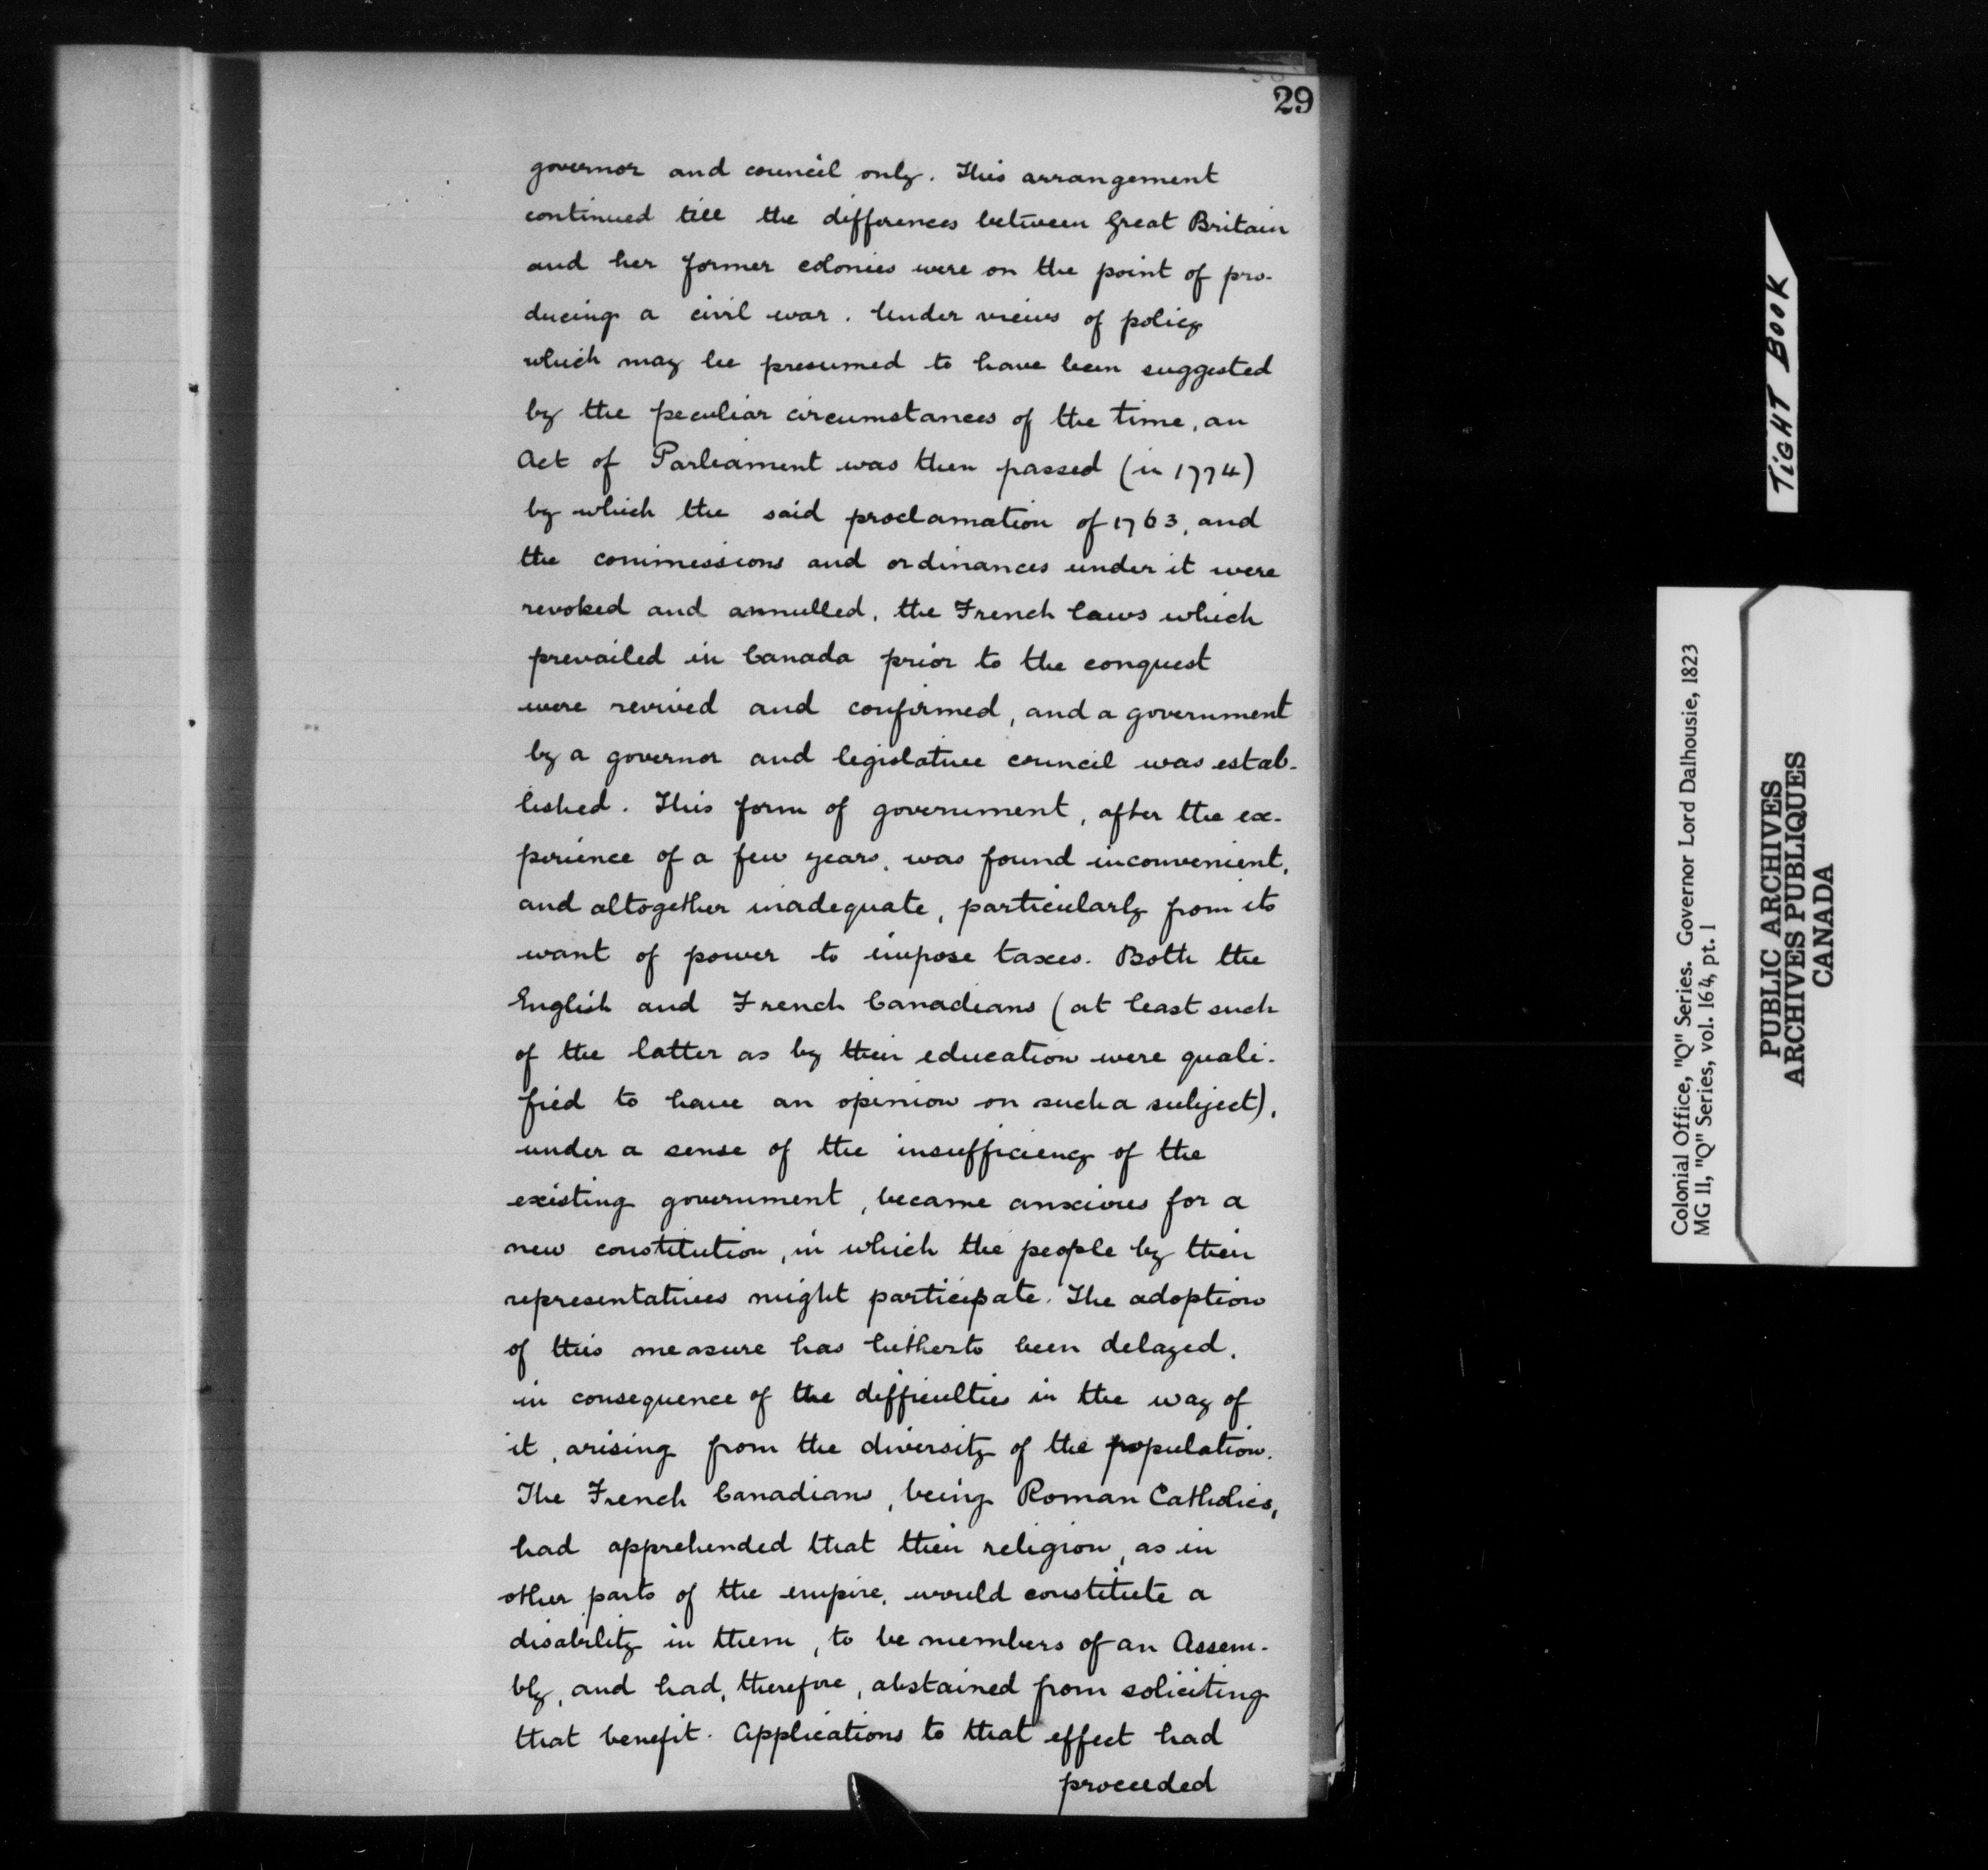 29
governor and council only. This arrangement
continued till the differences between Great Britain
and her former colonies were on the point of pro-
ducing a civil war. Under views of policy
which may be presumed to have been suggested
by the peculiar circumstances of the time, an
Act of Parliament was then passed (in 1774)
by which the said proclamation of 1763, and
the commissions and ordinances under it were
revoked and annulled, the French laws which
prevailed in Canada prior to the conquest
were revived and confirmed, and a government
by a governor and legislative council was estab-
lished. This form of government, after the ex-
perience of a few years, was found inconvenient,
and altogether inadequate, particularly from its
want of power to impose taxes. Both the
English and French Canadians (at least such
of the latter as by their education were quali-
fied to have an opinion on such a subject),
under a sense of the insufficiency of the
existing government, became anxious for a
new constitution, in which the people by their
representatives might participate. The adoption
of this measure has hitherto been delayed,
in consequence of the difficulties in the way of
it, arising from the diversity of the population.
The French Canadians, being Roman Catholics,
had apprehended that their religion, as in
other parts of the empire, would constitute a
disability in them, to be members of an Assem-
bly, and had, therefore, abstained from soliciting
that benefit. Applications to that effect had
proceeded
TIGHT BOOK
Colonial Office, "Q" Series. Governor Lord Dalhousie, 1823
MG 11, "Q" Series, vol. 164, pt. 1
PUBLIC ARCHIVES
ARCHIVES PUBLIQUES
CANADA